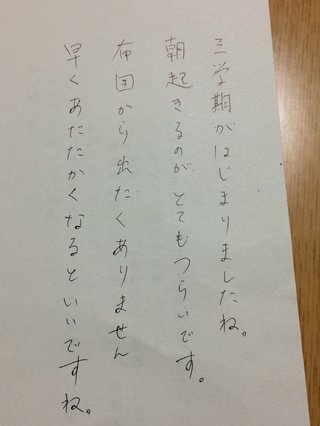 三学期がはじまりましたね。
朝起きるのが、とてもつらいです。
布団から出たくありません
早くあたたかくなるといいですね。